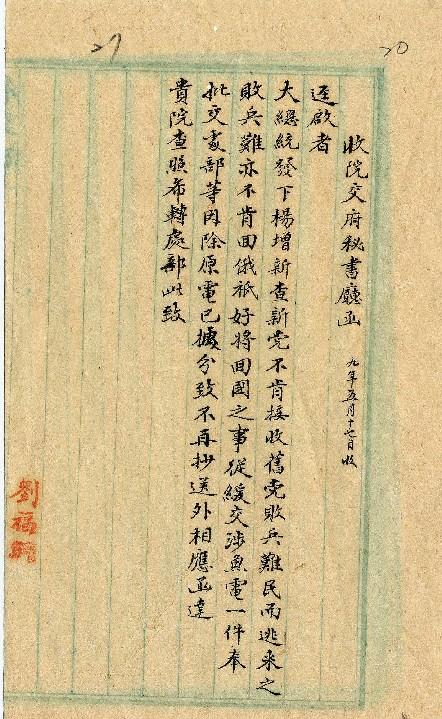 20
27
收院交府秘書廳函 九年五月十七日收
逕啟者
大總統發下楊增新查新党不肯接收舊党敗兵難民而逃來之
敗兵難亦不肯回俄祇好將回國之事從緩交涉魚電一件奉
批交處部等因除原電已據分致不再抄送外相應函達
貴院查照希轉處部此致
劉福